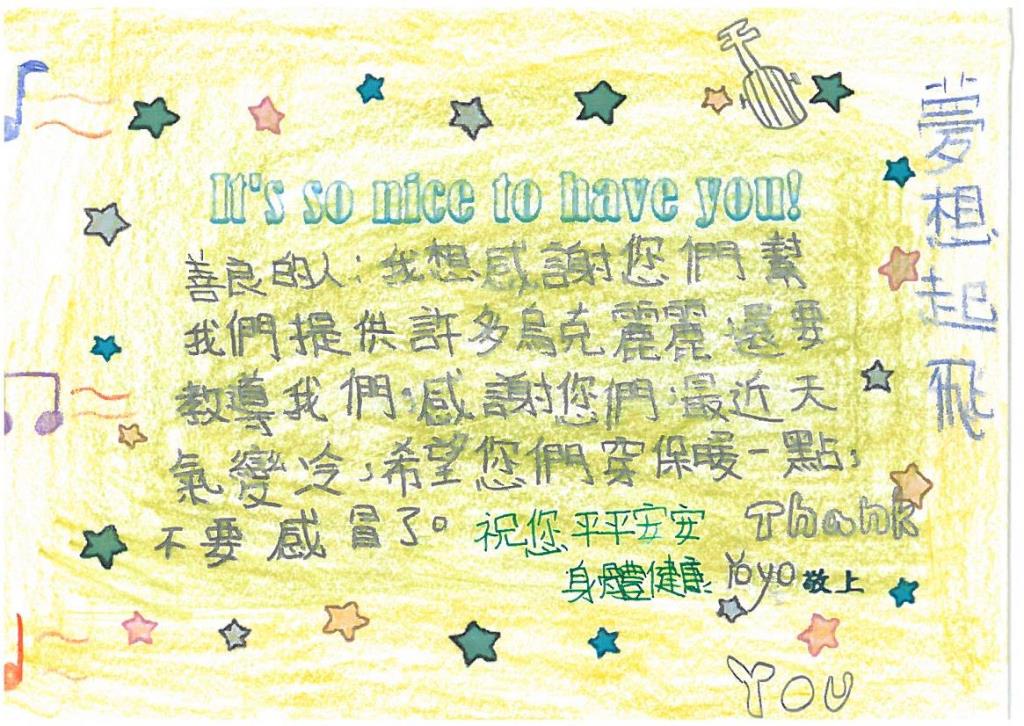 夢想起飛
It's so nice to have you!
善良的人:我想感謝您們幫
我們提供許多烏克麗麗還要
教導我們,感謝您們,最近天
氣變冷,希望您們穿保暖一點,
不要感冒了。祝您平平安安
身體健康
Yoyo敬上
Thank
You